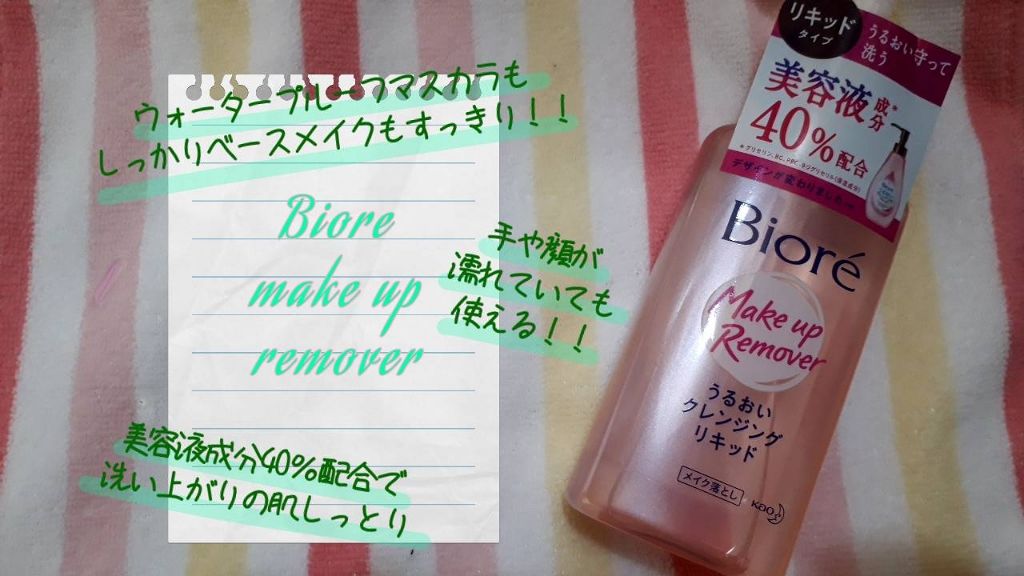 ウォータープルーフマスカラも
しっかりベースメイクもすっきり！！
Biore
make up
remover
手や顔が
濡れていても
使える！！
美容液成分40%配合で
洗い上がりの肌しっとり
リキッド
タイプ
うるおい守って
洗う
美容液成分*
40%配合
デザインが変わりました
Bioré
Make up
Remover
うるおい
クレンジング
リキッド
メイク落とし
Kao